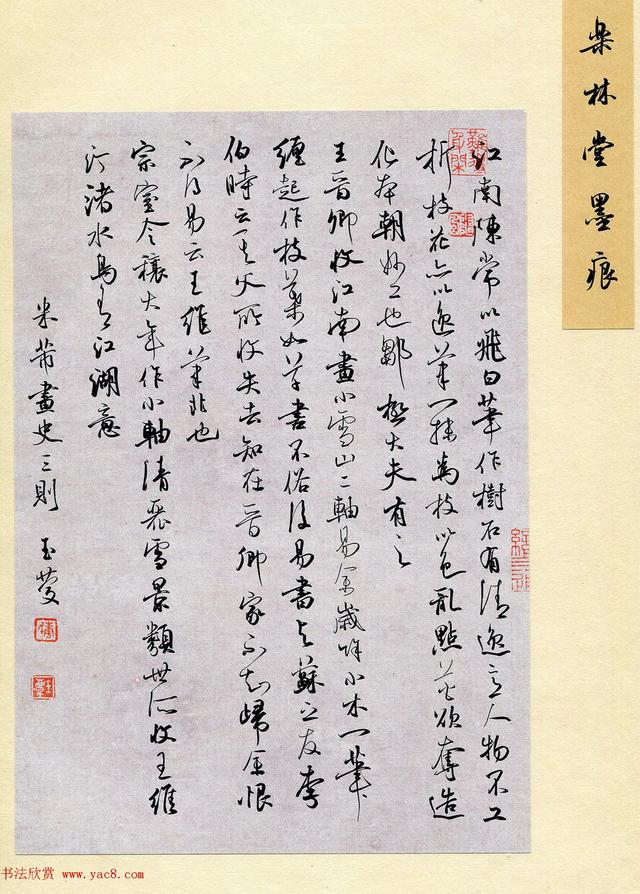 桌林堂墨痕
江南陳常以飛白筆作樹石有清逸意人物不工
折枝花亦以逸筆一抹為枝以色亂點花欲奪造
化本朝妙工也鄒極大夫有之
王晉卿收江南畫小雪山二軸易余歲餘小木一筆
纏起作枝葉如草書不俗後易書與蘇之友李
伯時云天父所收失去知在晉卿家不知歸余恨
不得易云王維筆非也
宗室令穰大年作小軸清麗雪景類世所收王維
汀渚水鳥有江湖意
米芾畫史三則 玉
书法欣赏 www.yac8.com